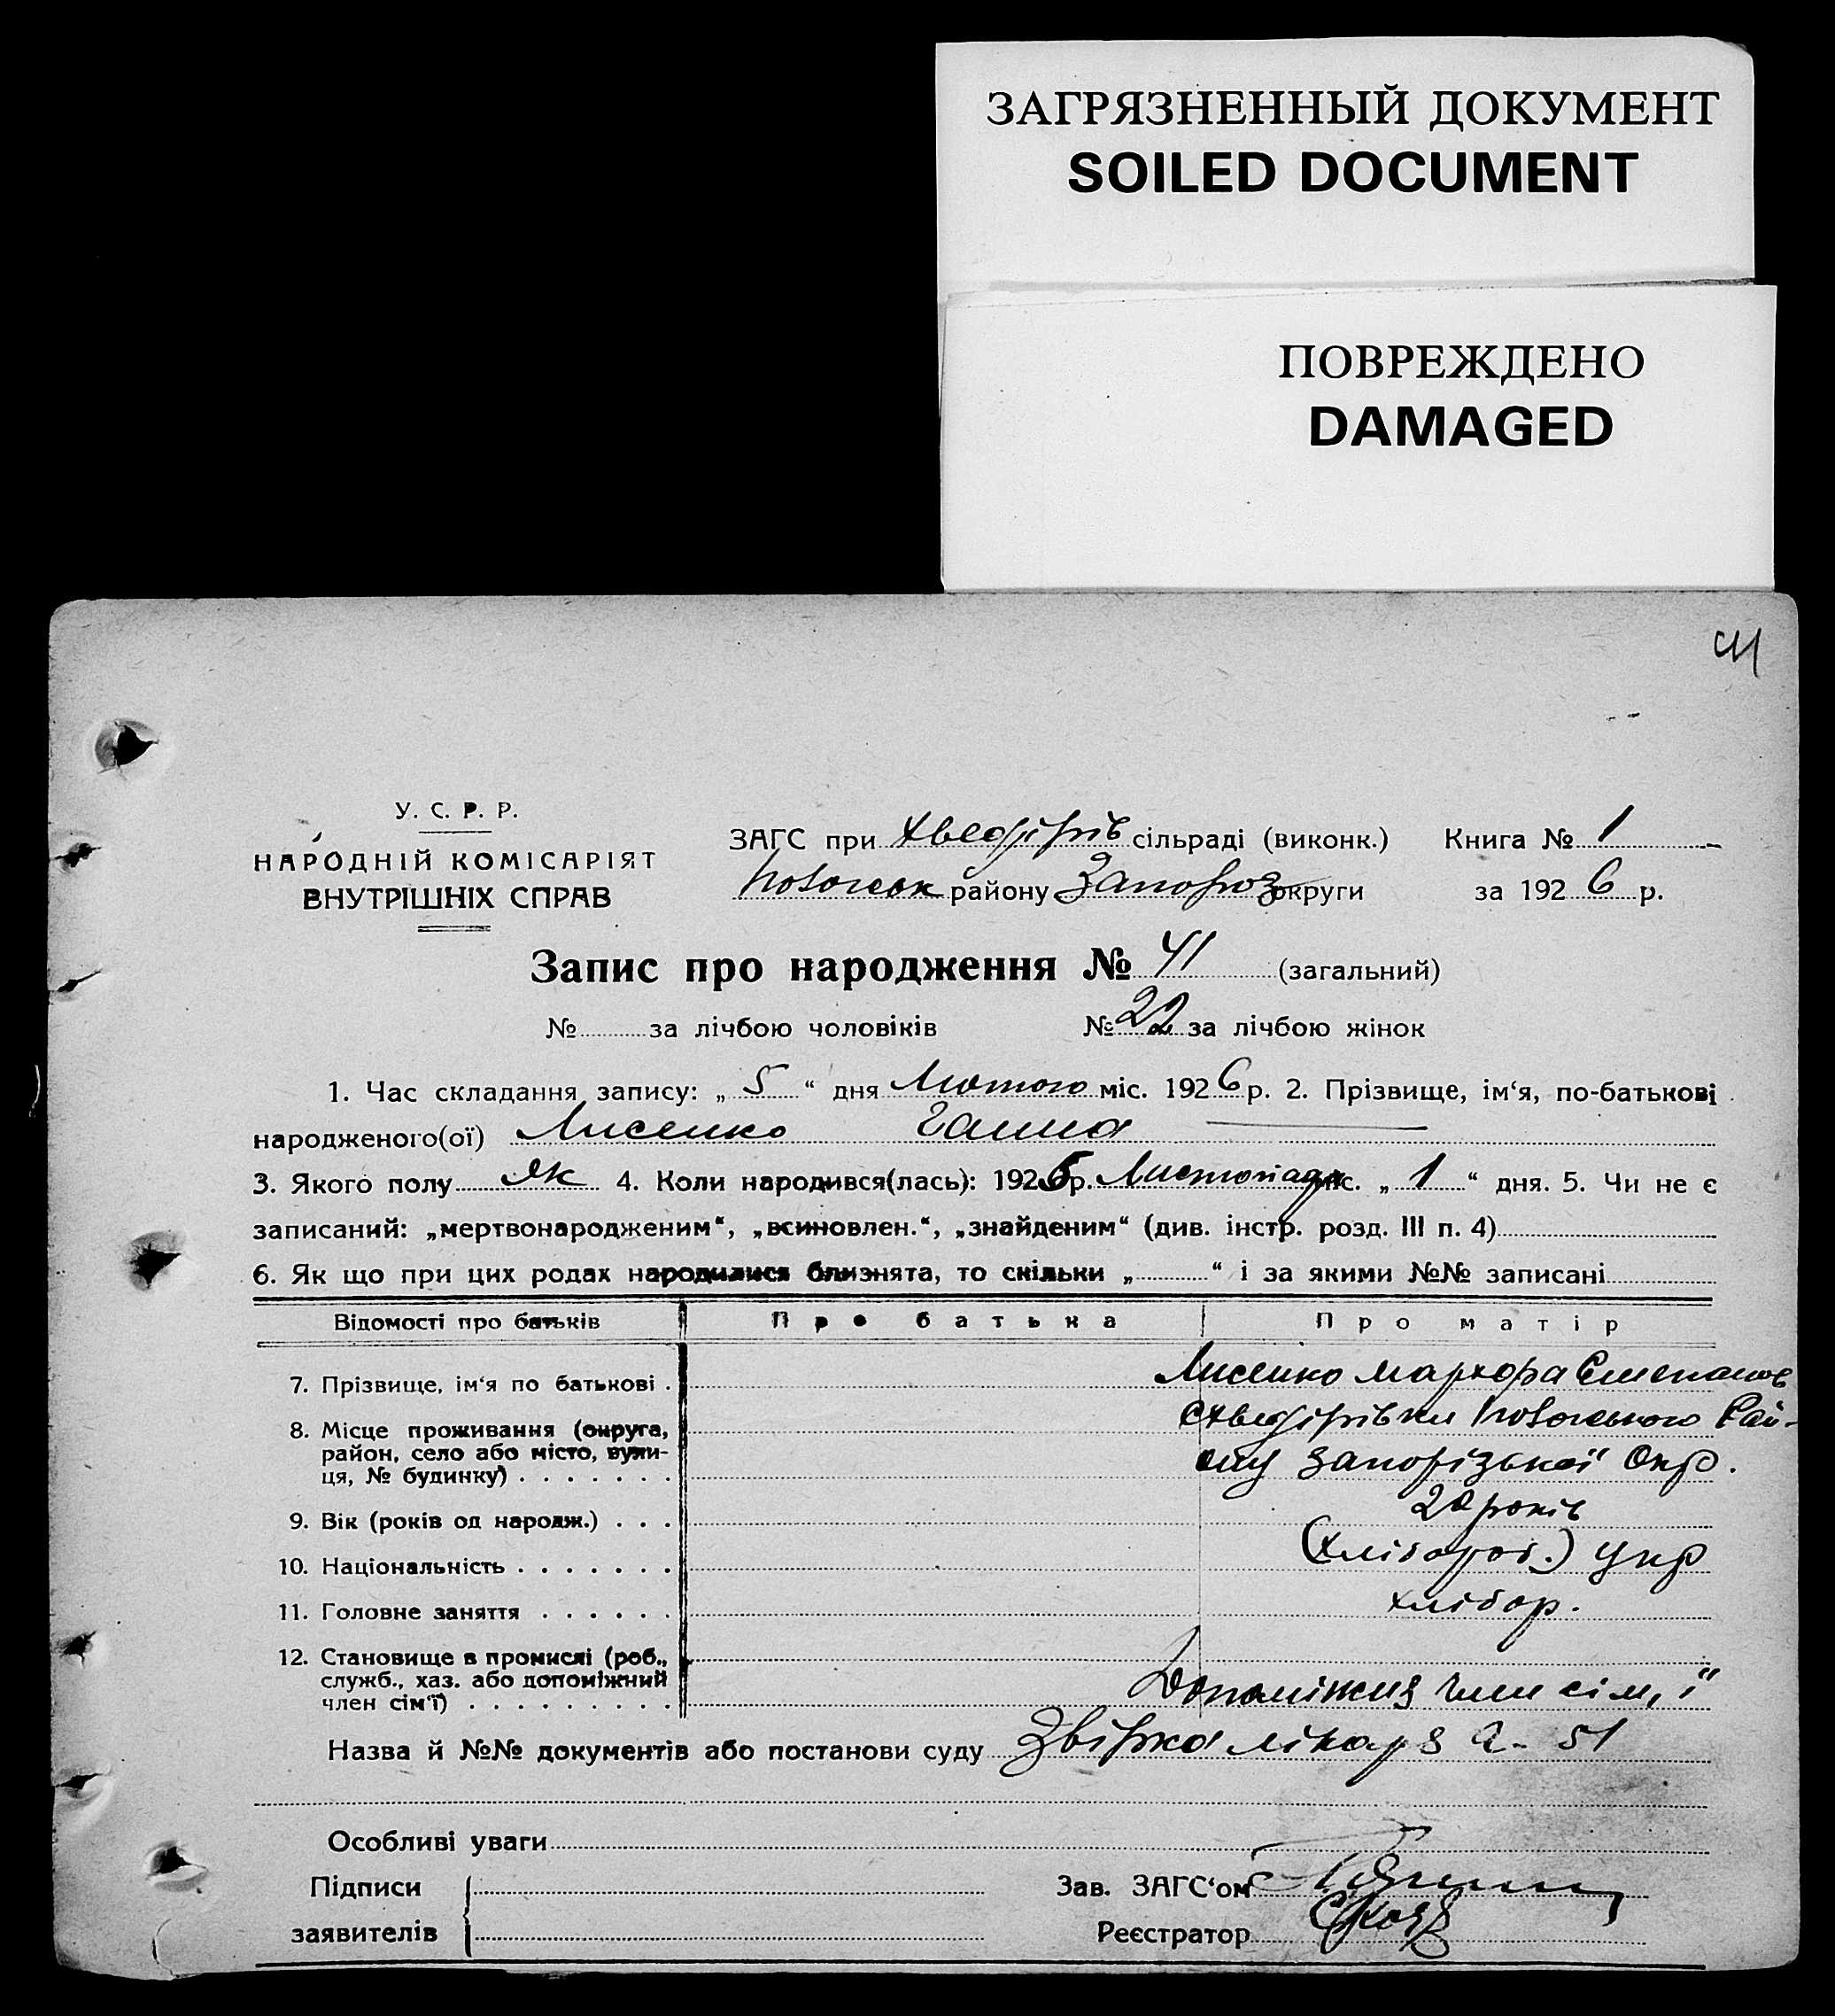 ЗАГРЯЗНЕННЫЙ ДОКУМЕНТ
SOILED DOCUMENT
ПОВРЕЖДЕНО
DAMAGED
41
У. С. Р. Р.
НАРОДНІЙ КОМІСАРІЯТ
ВНУТРІШНІХ СПРАВ
ЗАГС при Хведорів сільраді (виконк.) Книга № 1
району Запороз округи за 1926 р.
Запис про народження № 41 (загальний)
№ за лічбою чоловіків № 22 за лічбою жінок
1. Час складання запису: „5“ дня Лютого міс. 1926 р. 2. Прізвище, ім‘я, по-батькові
народженого(ої) Лисенко Ганна
3. Якого полу Жк 4. Коли народився(лась): 1925 р. Листопада міс. „1“ дня. 5. Чи не є
записаний: „мертвонародженим“, „всиновлен.“, „знайденим“ (див. інстр. розд. III п. 4)
6. Як що при цих родах народилися близнята, то скільки „ “ і за якими №№ записані
Відомості про батьків Про батька Про матір
7. Прізвище, ім‘я по батькові . Лисенко Мархора Степанов
8. Місце проживання (округа,
район, село або місто, вули-
ця, № будинку) . . . . . . . Запорізької Окр.
9. Вік (років од народж.) . . . 20 років
10. Національність . . . . . . . (хлібороб.) Укр
11. Головне заняття . . . . . . хлібор.
12. Становище в промислі (роб.,
служб., хаз. або допоміжний
член сім‘ї) . . . . . . . . . Допоміжня член сім,ї
Назва й №№ документів або постанови суду лікаря 51
Особливі уваги
Підписи Зав. ЗАГС‘ом
заявителів Реєстратор